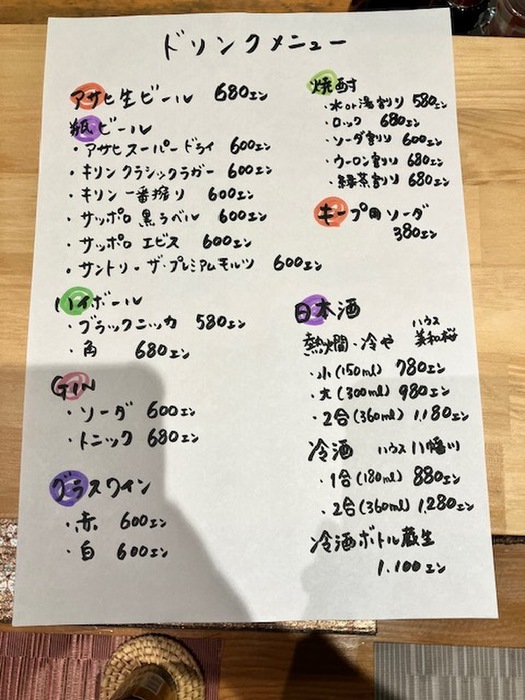 ドリンクメニュー
アサヒ生ビール 680エン
瓶ビール
・アサヒスーパードライ 600エン
・キリンクラシックラガー 600エン
・キリン一番搾り 600エン
・サッポロ黒ラベル 600エン
・サッポロ エビス 600エン
・サントリーザ・プレミアムモルツ 600エン
ハイボール
・ブラックニッカ 580エン
・角 680エン
GIN
・ソーダ 600エン
・トニック 680エン
グラスワイン
・赤 600エン
・白 600エン
焼酎
・水or湯割り 580エン
・ロック 680エン
・ソーダ割り 600エン
・ウーロン割り 680エン
・緑茶割り 680エン
キープ用ソーダ
380エン
日本酒
熱燗・冷や ハウス美和桜
・小(150ml) 780エン
・大(300ml) 980エン
・2合(360ml) 1,180エン
冷酒 ハウス八幡川
・1合(180ml) 880エン
・2合(360ml) 1,280エン
冷酒ボトル蔵生
1,100エン